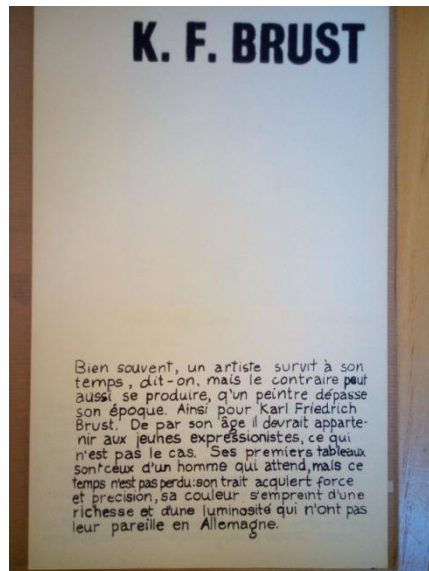 K. F. BRUST
Bien souvent, un artiste survit à son
temps, dit-on, mais le contraire peut
aussi se produire, q'un peintre dépasse
son époque. Ainsi pour Karl Friedrich
Brust. De par son âge il devrait apparte-
nir aux jeunes expressionistes, ce qui
n'est pas le cas. Ses premiers tableaux
sont ceux d'un homme qui attend, mais ce
temps n'est pas perdu: son trait acquiert force
et precision, sa couleur s'empreint d'une
richesse et d'une luminosité qui n'ont pas
leur pareille en Allemagne.